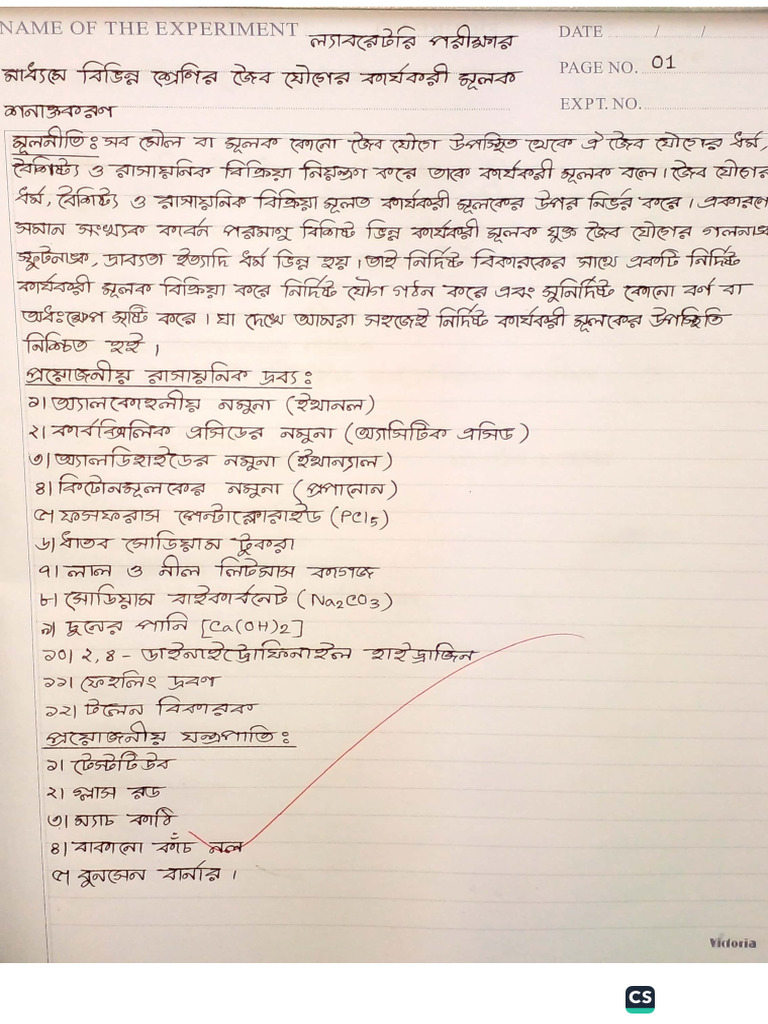 NAME OF THE EXPERIMENT ল্যাবরেটরি পরীক্ষার
DATE / /
মাধ্যমে বিভিন্ন শ্রেণির জৈব যৌগের কার্যকরী মূলক
PAGE NO. 01
শনাক্তকরণ
EXPT. NO.
মূলনীতি: সব মৌল বা মূলক কোনো জৈব যৌগে উপস্থিত থেকে ঐ জৈব যৌগের ধর্ম,
বৈশিষ্ট্য ও রাসায়নিক বিক্রিয়া নিয়ন্ত্রণ করে তাকে কার্যকরী মূলক বলে। জৈব যৌগের
ধর্ম, বৈশিষ্ট্য ও রাসায়নিক বিক্রিয়া মূলত কার্যকরী মূলকের উপর নির্ভর করে। একারণে
সমান সংখ্যক কার্বন পরমাণু বিশিষ্ট ভিন্ন কার্যকরী মূলক যুক্ত জৈব যৌগের গলনাঙ্ক
স্ফুটনাঙ্ক, দ্রাব্যতা ইত্যাদি ধর্ম ভিন্ন হয়। তাই নির্দিষ্ট বিকারকের সাথে একটি নির্দিষ্ট
কার্যকরী মূলক বিক্রিয়া করে নির্দিষ্ট যৌগ গঠন করে এবং সুনির্দিষ্ট কোনো বর্ণ বা
অধঃক্ষেপ সৃষ্টি করে। যা দেখে আমরা সহজেই নির্দিষ্ট কার্যকরী মূলকের উপস্থিতি
নিশ্চিত হই।
প্রয়োজনীয় রাসায়নিক দ্রব্য:
১। অ্যালকোহলীয় নমুনা (ইথানল)
২। কার্বক্সিলিক এসিডের নমুনা (অ্যাসিটিক এসিড)
৩। অ্যালডিহাইডের নমুনা (ইথান্যাল)
৪। কিটোনমূলকের নমুনা (প্রপানোন)
৫। ফসফরাস পেন্টাক্লোরাইড (PCl5)
৬। ধাতব সোডিয়াম টুকরা
৭। লাল ও নীল লিটমাস কাগজ
৮। সোডিয়াম বাইকার্বনেট (Na2CO3)
৯। চুনের পানি [Ca(OH)2]
১০। ২,৪- ডাইনাইট্রোফিনাইল হাইড্রাজিন
১১। ফেহলিং দ্রবণ
১২। টলেন বিকারক
প্রয়োজনীয় যন্ত্রপাতি:
১। টেস্টটিউব
২। গ্লাস রড
৩। ম্যাচ কাঠি
৪। বাকানো কাঁচ নল
৫। বুনসেন বার্নার।
Victoria
CS